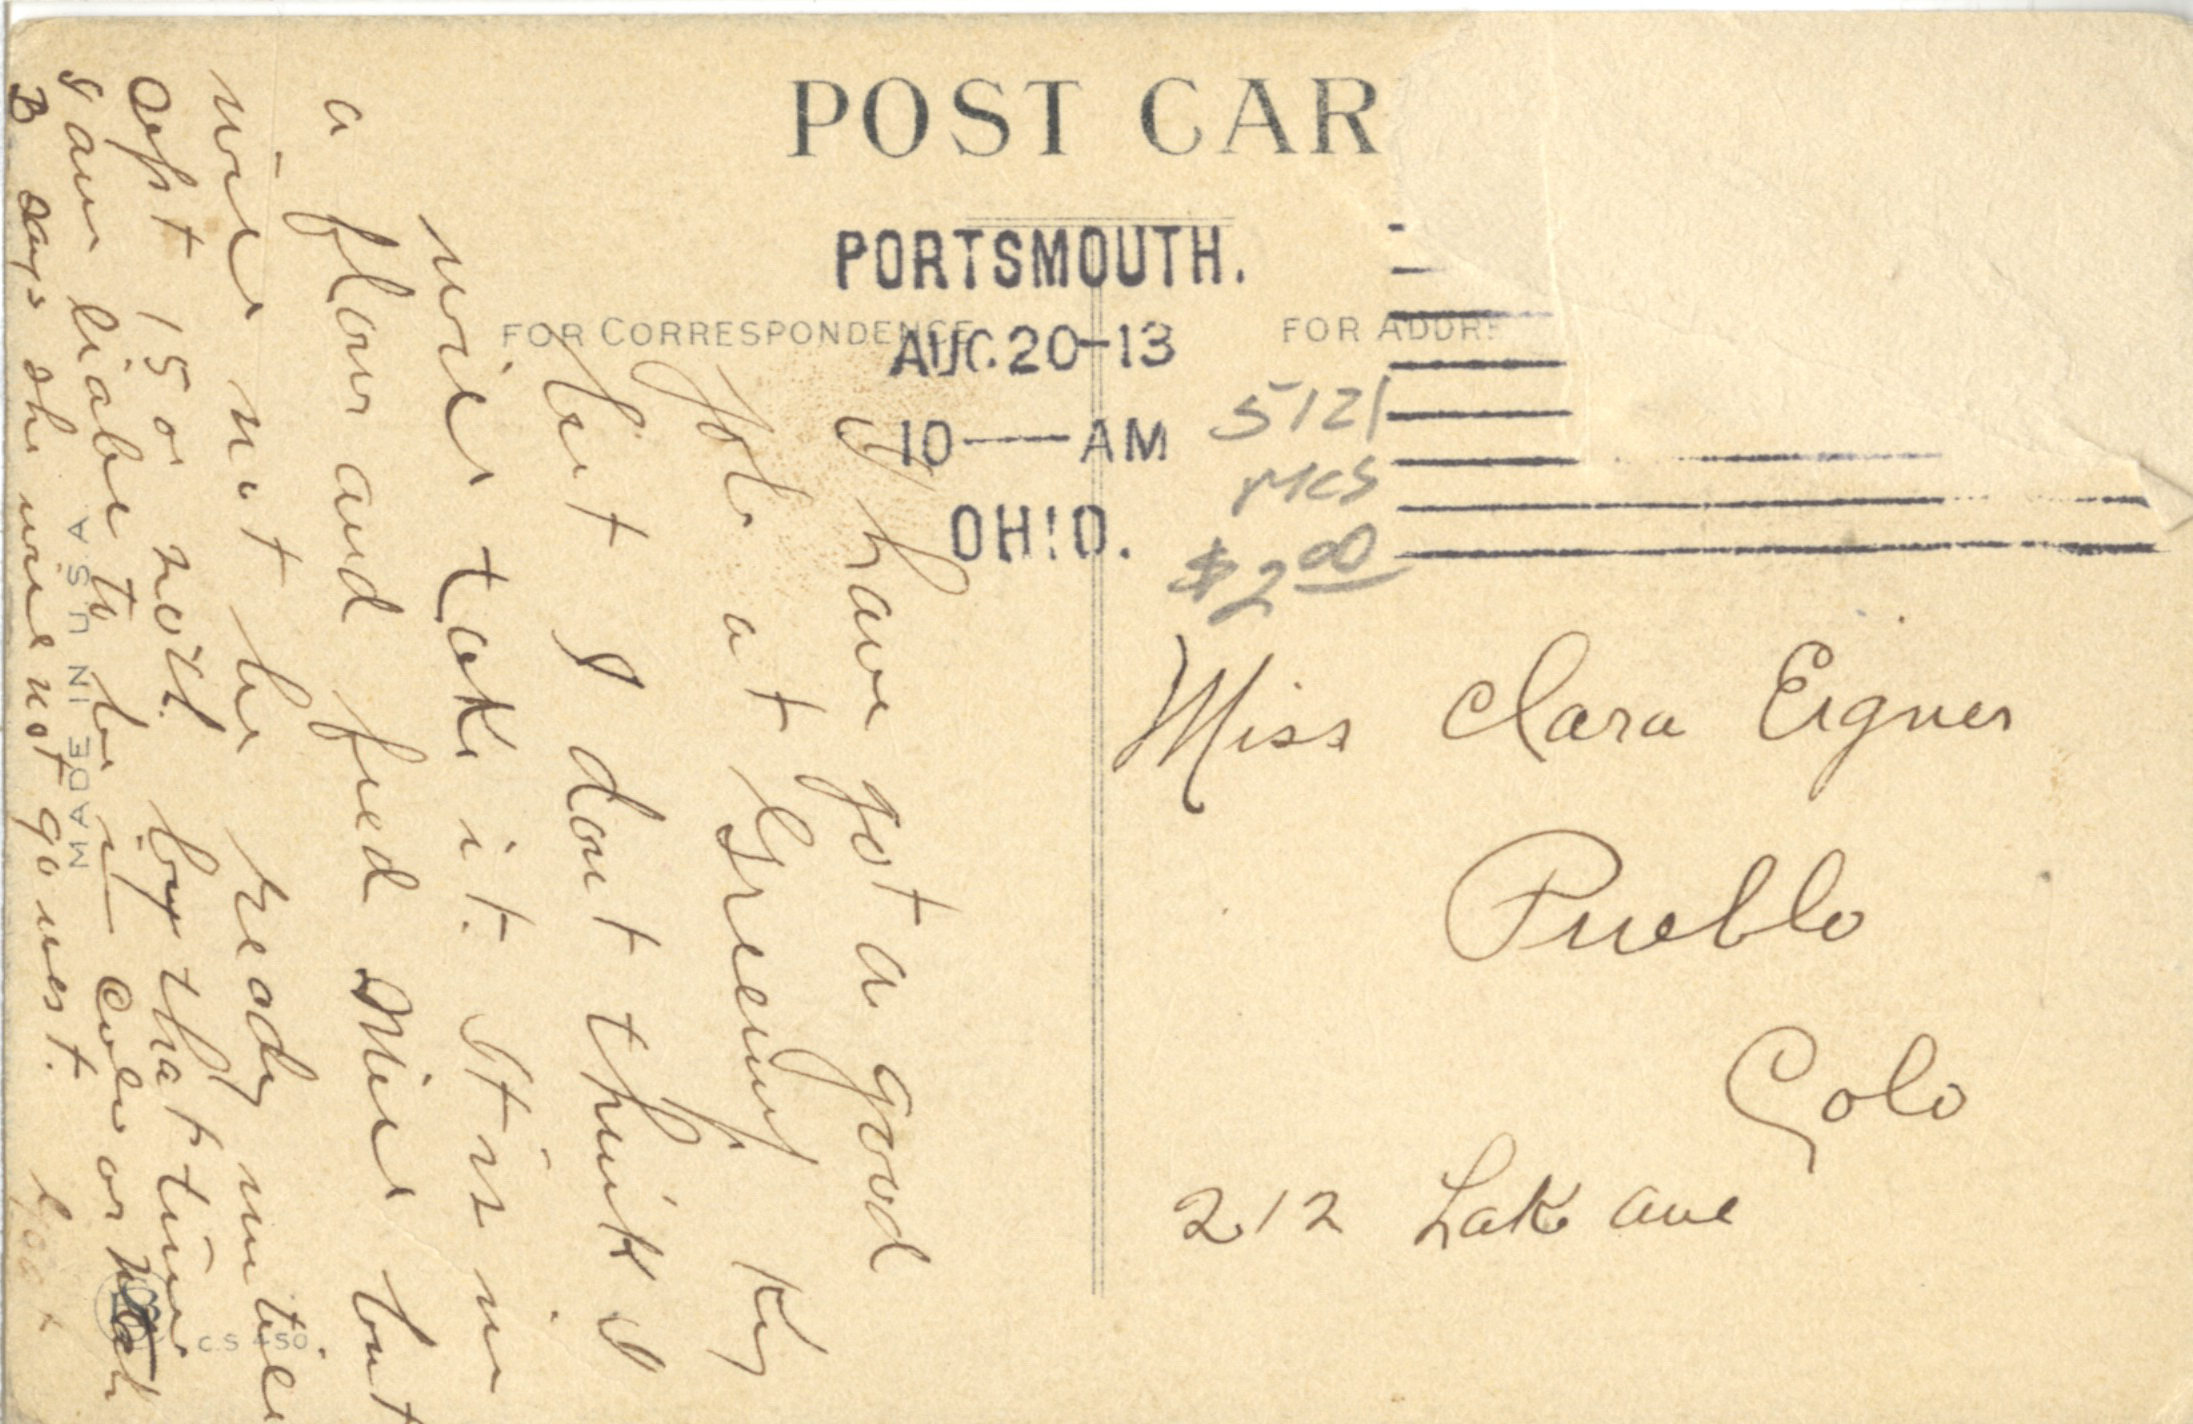 POST CAR
PORTSMOUTH.
AUG. 20-13
10 — AM
OHIO.
FOR CORRESPONDENCE
FOR ADDRE
5121
MCS
$2.00
Miss Clara Eigner
Pueblo
Colo
212 Lake ave
I have got a good
Job at Greenup Ky
but I dont think I
will take it. It is in
a flour and feed Mill but
will not be ready until
Sept 15 or not. by that time
I am liable to be in Colo or
B says she will not go west.
MADE IN U S A
C.S 450.